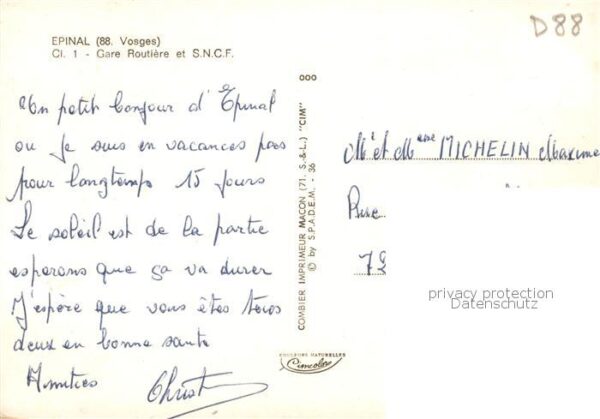 D88
EPINAL (88. Vosges)
Cl. 1 - Gare Routière et S.N.C.F.
Un petit bonjour d'Epinal
ou je suis en vacances pas
pour longtemps 15 jours
Le soleil est de la partie
esperons que ça va durer
J'espère que vous êtes tous
deux en bonne sante
Amitiés
Christ
COMBIER IMPRIMEUR MACON (71. S.-&-L.) "CIM"
© by S.P.A.D.E.M. - 36
COULEURS NATURELLES
Cimcolor
Mr et Mme MICHELIN Maxime
Rue
72
privacy protection
Datenschutz